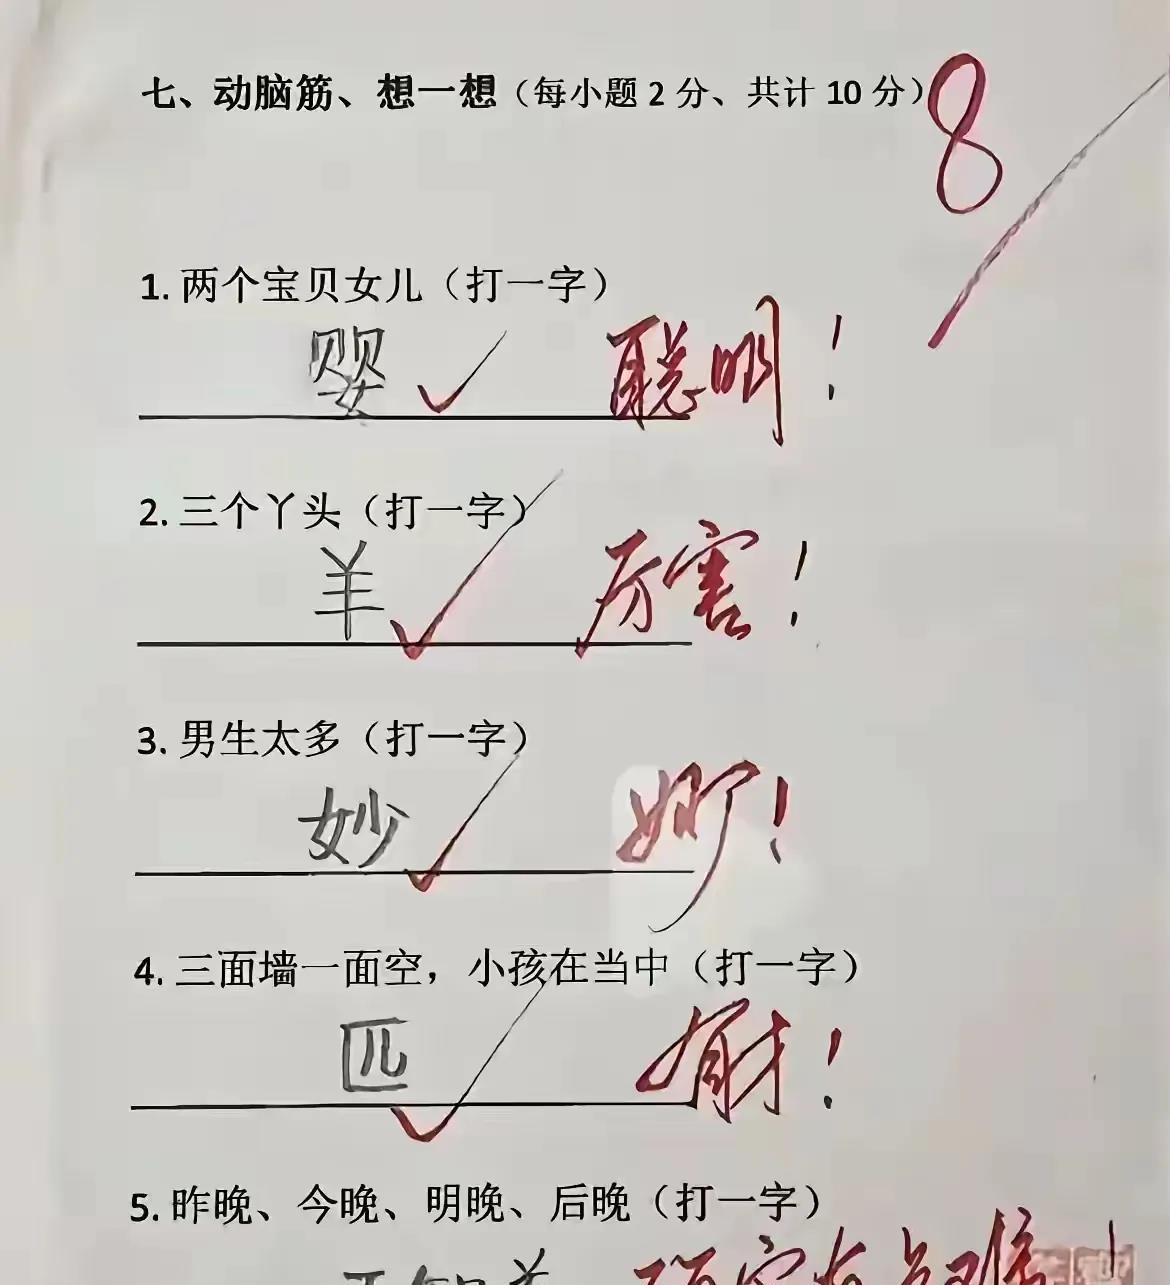 七、动脑筋、想一想（每小题2分、共计10分）8
1. 两个宝贝女儿（打一字）
婴 聪明！
2. 三个丫头（打一字）
羊 厉害！
3. 男生太多（打一字）
妙 妙！
4. 三面墙一面空，小孩在当中（打一字）
匹 有才！
5. 昨晚、今晚、明晚、后晚（打一字）
不知道 确实有点难